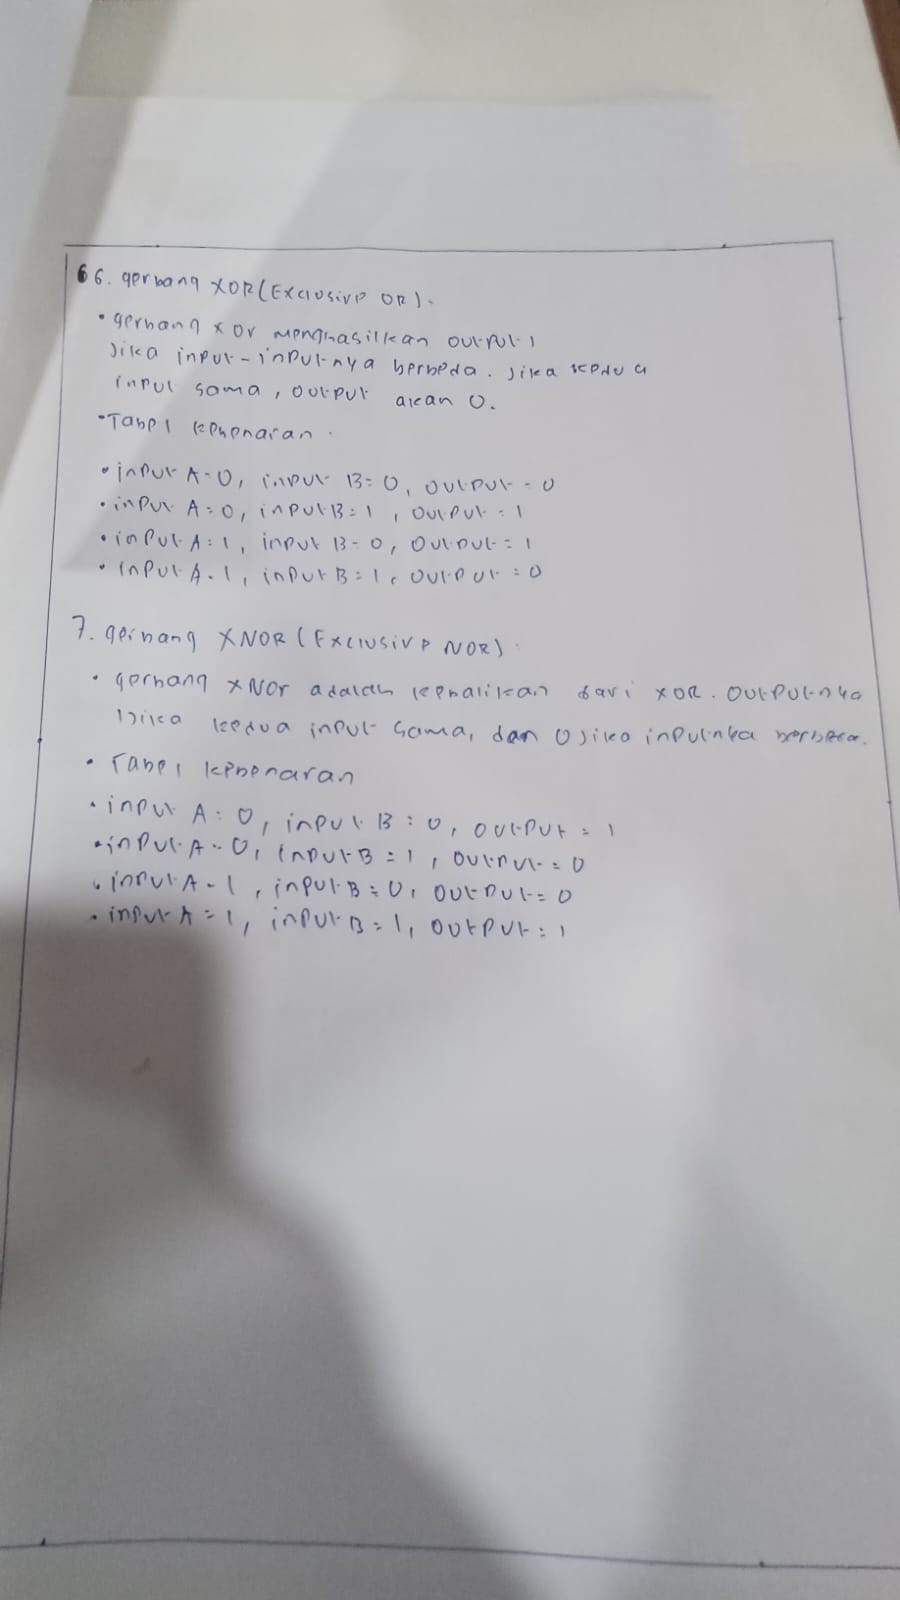 6 6. gerbang XOR (Exclusive OR).
• gerbang xor menghasilkan output 1
Jika input-inputnya berbeda. Jika kedua
input sama, output akan 0.
• Tabel kebenaran.
• input A=0, input B=0, output=0
• input A=0, input B=1, output=1
• input A=1, input B=0, output=1
• input A=1, input B=1, output=0
7. gerbang XNOR (Exclusive NOR).
• gerbang xNOr adalah kebalikan dari XOR. Outputnya
1 jika kedua input sama, dan 0 jika inputnya berbeda.
• Tabel kebenaran
• input A=0, input B=0, output=1
• input A=0, input B=1, output=0
• input A=1, input B=0, output=0
• input A=1, input B=1, output=1